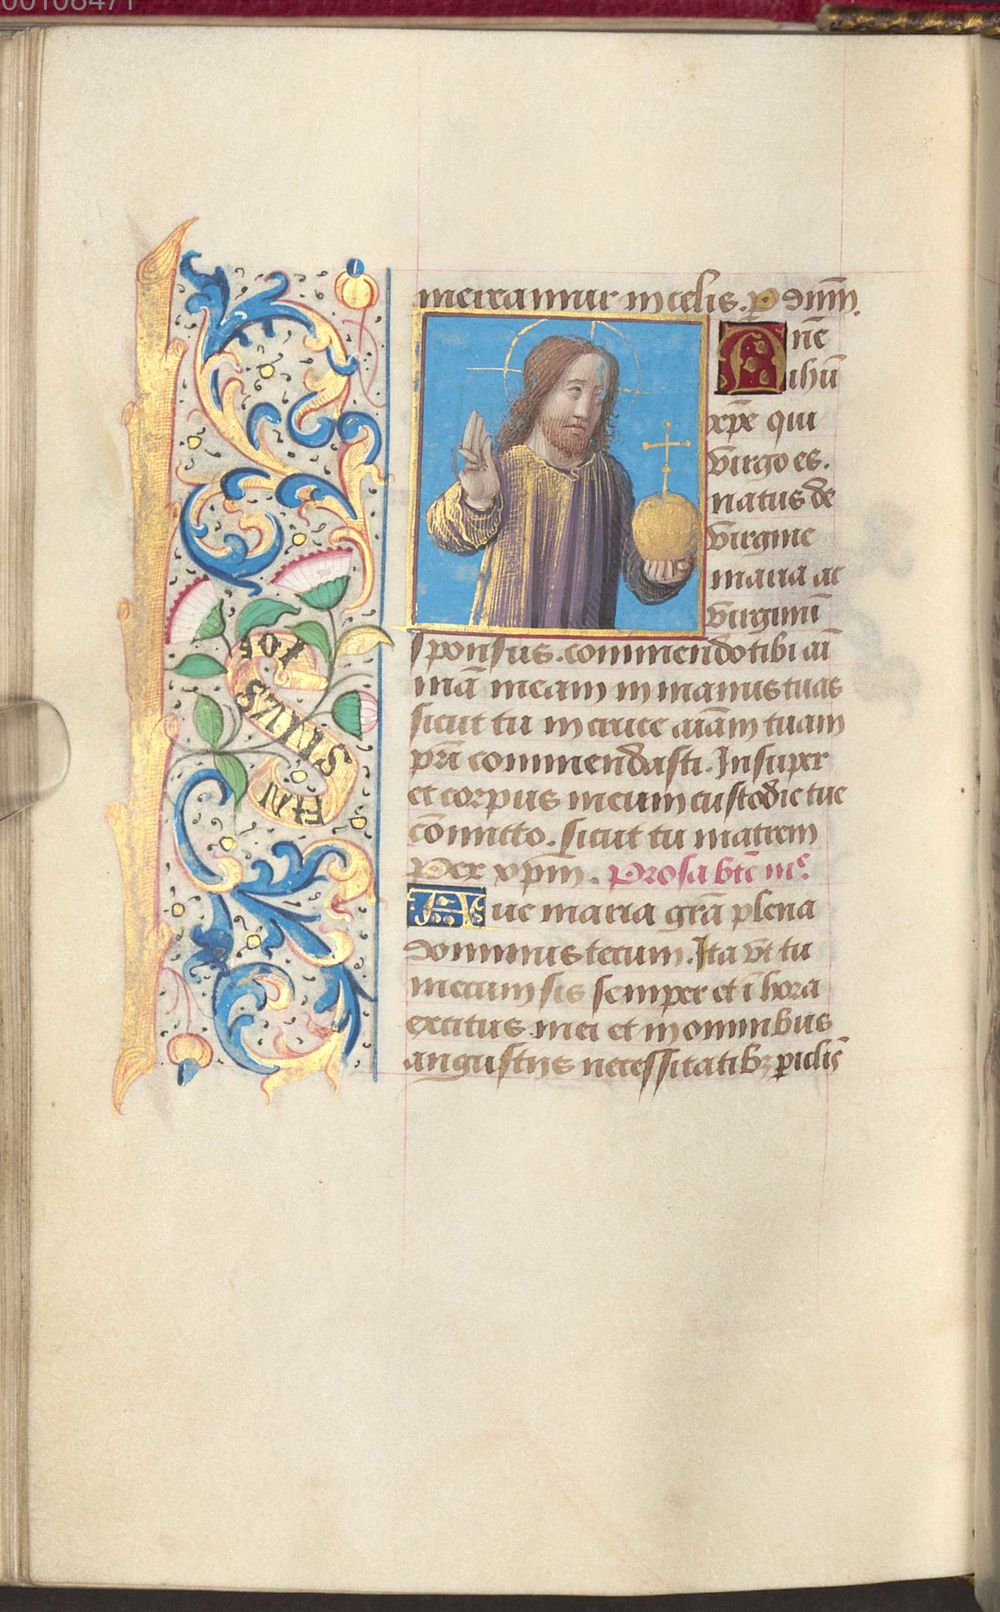 00108471
mereamur in celis. p dnm̄.
A ne
ihū
xp̄e qui
virgo es.
natus de
virgine
maria ac
virginū
sponsus. commendo tibi ai
mā meam in manus tuas
sicut tu in cruce aīam tuam
pr̄i commendasti. Insuper
et corpus meum custodie tue
cōmitto. sicut tu matrem
Per xpm̄. Prosa bt̄e m̄ᵉ
Aue maria grā plena
dominus tecum. Ita vt tu
mecum sis semper et ī hora
exitus mei et in omnibus
angustijs necessitatibꝫ ꝑiclis̄
EN
SIVUS
IOS